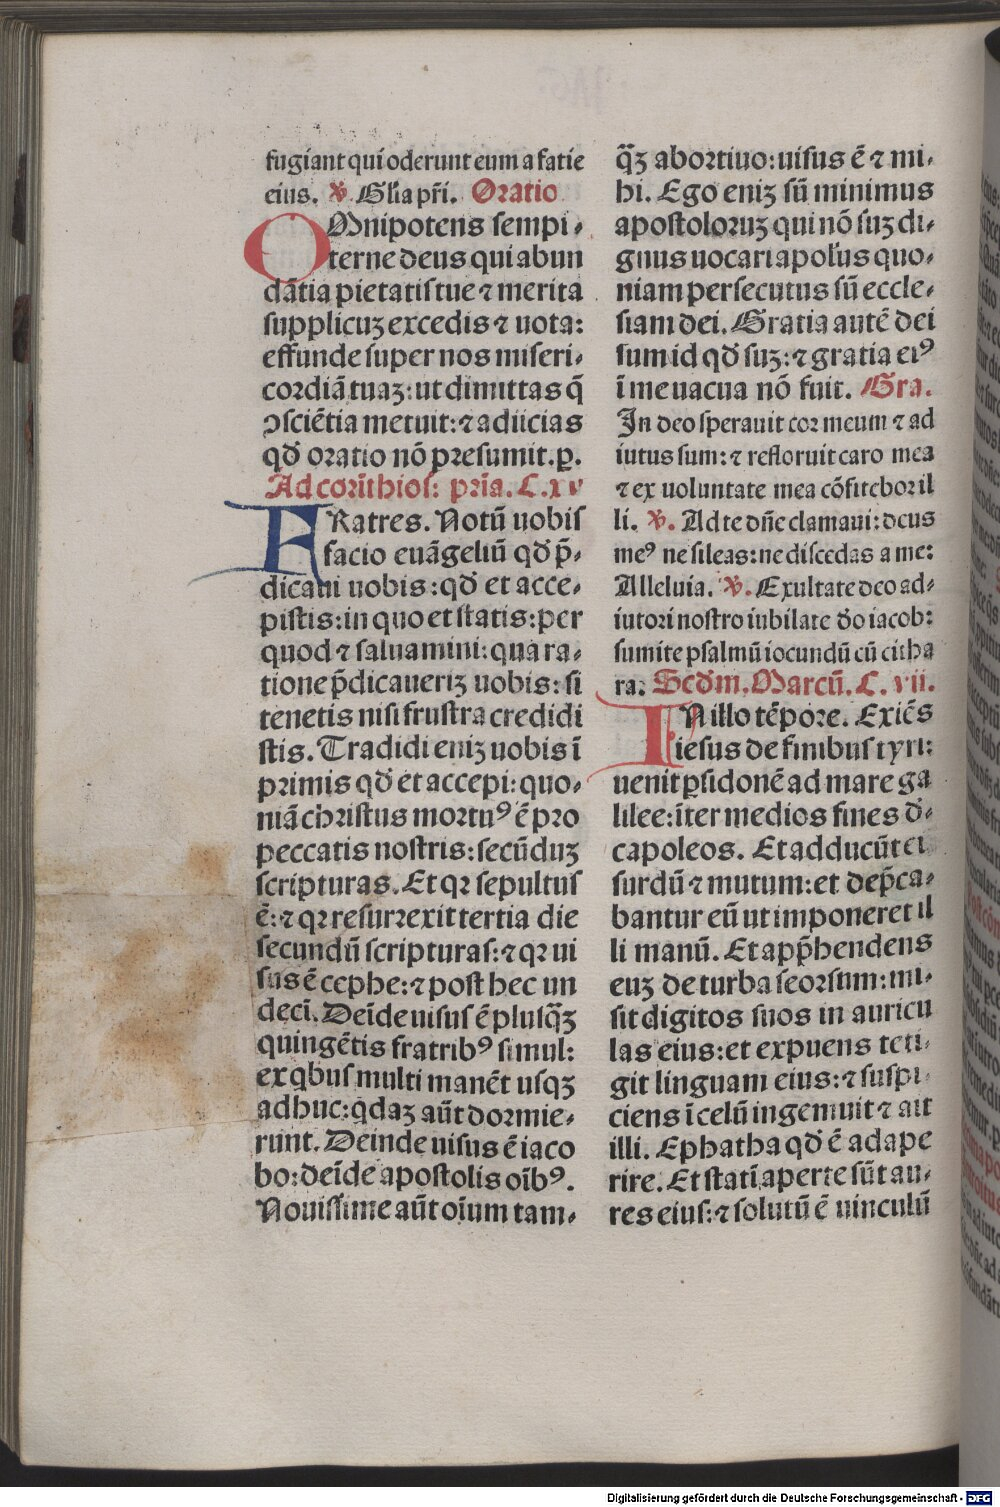 fugiant qui oderunt eum a fatie
eius. ℣. Gl̃ia pr̃i. Oratio
OMnipotens sempi⸗
terne deus qui abun
dãtia pietatis tue ⁊ merita
supplicuꝫ excedis ⁊ uota:
effunde super nos miseri⸗
cordiã tuaꝫ: ut dimittas q̃
ↄsciẽtia metuit: ⁊ adiicias
qđ oratio nõ presumit. p.
Ad corĩthios: prĩa. C. xv
FRatres. Notũ uobis
facio euãgeliũ qđ p̃⸗
dicaui uobis: qđ et acce⸗
pistis: in quo et statis: per
quod ⁊ saluamini: qua ra⸗
tione p̃dicaueriꝫ uobis: si
tenetis nisi frustra credidi
stis. Tradidi eniꝫ uobis ĩ
primis qđ et accepi: quo⸗
niã christus mortuꝰ ẽ pro
peccatis nostris: secũduꝫ
scripturas. Et qꝛ sepultus
ẽ: ⁊ qꝛ resurrexit tertia die
secundũ scripturas: ⁊ qꝛ ui
sus ẽ cephe: ⁊ post hec un
deci. Deĩde uisus ẽ plusq̃ꝫ
quingẽtis fratribꝰ simul:
ex qbus multi manẽt usqꝫ
adhuc: qdaꝫ aũt dormie⸗
runt. Deinde uisus ẽ iaco
bo: deĩde apostolis oĩbꝰ.
Nouissime aũt oĩum tam⸗
q̃ꝫ abortiuo: uisus ẽ ⁊ mi⸗
hi. Ego eniꝫ sũ minimus
apostoloruꝫ qui nõ suꝫ di⸗
gnus uocari apo l'us quo⸗
niam persecutus sũ eccle⸗
siam dei. Gratia autẽ dei
sum id qđ suꝫ: ⁊ gratia eiꝰ
ĩ me uacua nõ fuit. Gra.
In deo sperauit cor meum ⁊ ad
iutus sum: ⁊ refloruit caro mea
⁊ ex uoluntate mea cõfitebor il
li. ℣. Ad te dñe clamaui: deus
meꝰ ne sileas: ne discedas a me:
Alleluia. ℣. Exultate deo ad⸗
iutori nostro iubilate đo iacob:
sumite psalmũ iocundũ cũ citha
ra: Scđm. Marcũ. C. vii.
IN illo tẽpore. Exiẽs
iesus de finibus tyri:
uenit p sidonẽ ad mare ga
lilee: ĩter medios fines đ⸗
capoleos. Et adducũt ei
surdũ ⁊ mutum: et dep̃ca⸗
bantur eũ ut imponeret il
li manũ. Et app̃hendens
euꝫ de turba seorsum: mi⸗
sit digitos suos in auricu
las eius: et expuens teti⸗
git linguam eius: ⁊ suspi⸗
ciens ĩ celũ ingemuit ⁊ ait
illi. Ephatha qđ ẽ adape
rire. Et statĩ aperte sũt au⸗
res eius: ⁊ solutũ ẽ uinculũ
Digitalisierung gefördert durch die Deutsche Forschungsgemeinschaft - DFG